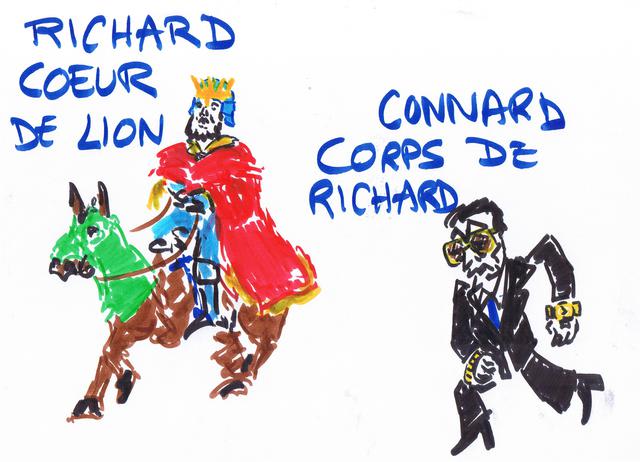 RICHARD
COEUR
DE LION
CONNARD
CORPS DE
RICHARD